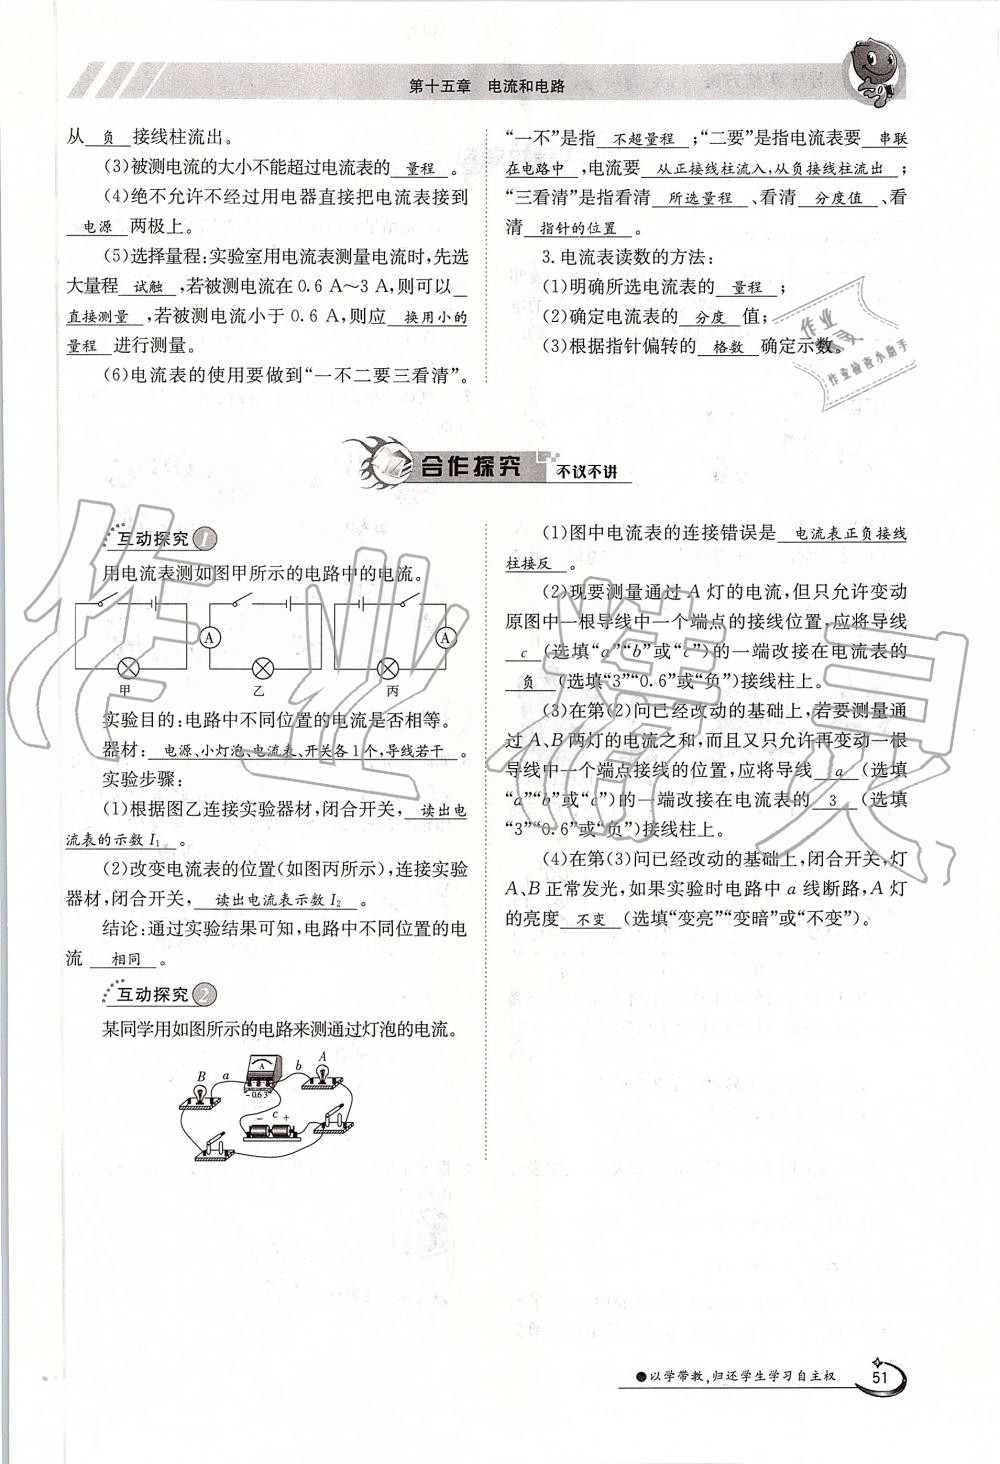 第十五章 电流和电路
从 负 接线柱流出。
(3)被测电流的大小不能超过电流表的 量程 。
(4)绝不允许不经过用电器直接把电流表接到
电源 两极上。
(5)选择量程:实验室用电流表测量电流时,先选
大量程 试触 ,若被测电流在 0.6 A~3 A,则可以
直接测量 ,若被测电流小于 0.6 A,则应 换用小的
量程 进行测量。
(6)电流表的使用要做到“一不二要三看清”。
“一不”是指 不超量程 ;“二要”是指电流表要 串联
在电路中 ,电流要 从正接线柱流入,从负接线柱流出 ;
“三看清”是指看清 所选量程 、看清 分度值 、看
清 指针的位置 。
3.电流表读数的方法:
(1)明确所选电流表的 量程 ;
(2)确定电流表的 分度 值;
(3)根据指针偏转的 格数 确定示数。
作业
作业检查小助手
合作探究 不议不讲
互动探究 1
用电流表测如图甲所示的电路中的电流。
A A
甲 乙 丙
实验目的:电路中不同位置的电流是否相等。
器材: 电源、小灯泡、电流表、开关各1个,导线若干 。
实验步骤:
(1)根据图乙连接实验器材,闭合开关, 读出电
流表的示数 I₁ 。
(2)改变电流表的位置(如图丙所示),连接实验
器材,闭合开关, 读出电流表示数 I₂ 。
结论:通过实验结果可知,电路中不同位置的电
流 相同 。
互动探究 2
某同学用如图所示的电路来测通过灯泡的电流。
B a A b A
- 0.6 3
c
- +
(1)图中电流表的连接错误是 电流表正负接线
柱接反 。
(2)现要测量通过 A 灯的电流,但只允许变动
原图中一根导线中一个端点的接线位置,应将导线
c (选填“a”“b”或“c”)的一端改接在电流表的
负 (选填“3”“0.6”或“负”)接线柱上。
(3)在第(2)问已经改动的基础上,若要测量通
过 A、B 两灯的电流之和,而且又只允许再变动一根
导线中一个端点接线的位置,应将导线 a (选填
“a”“b”或“c”)的一端改接在电流表的 3 (选填
“3”“0.6”或“负”)接线柱上。
(4)在第(3)问已经改动的基础上,闭合开关,灯
A、B 正常发光,如果实验时电路中 a 线断路,A 灯
的亮度 不变 (选填“变亮”“变暗”或“不变”)。
作业精灵
●以学带教,归还学生学习自主权
51